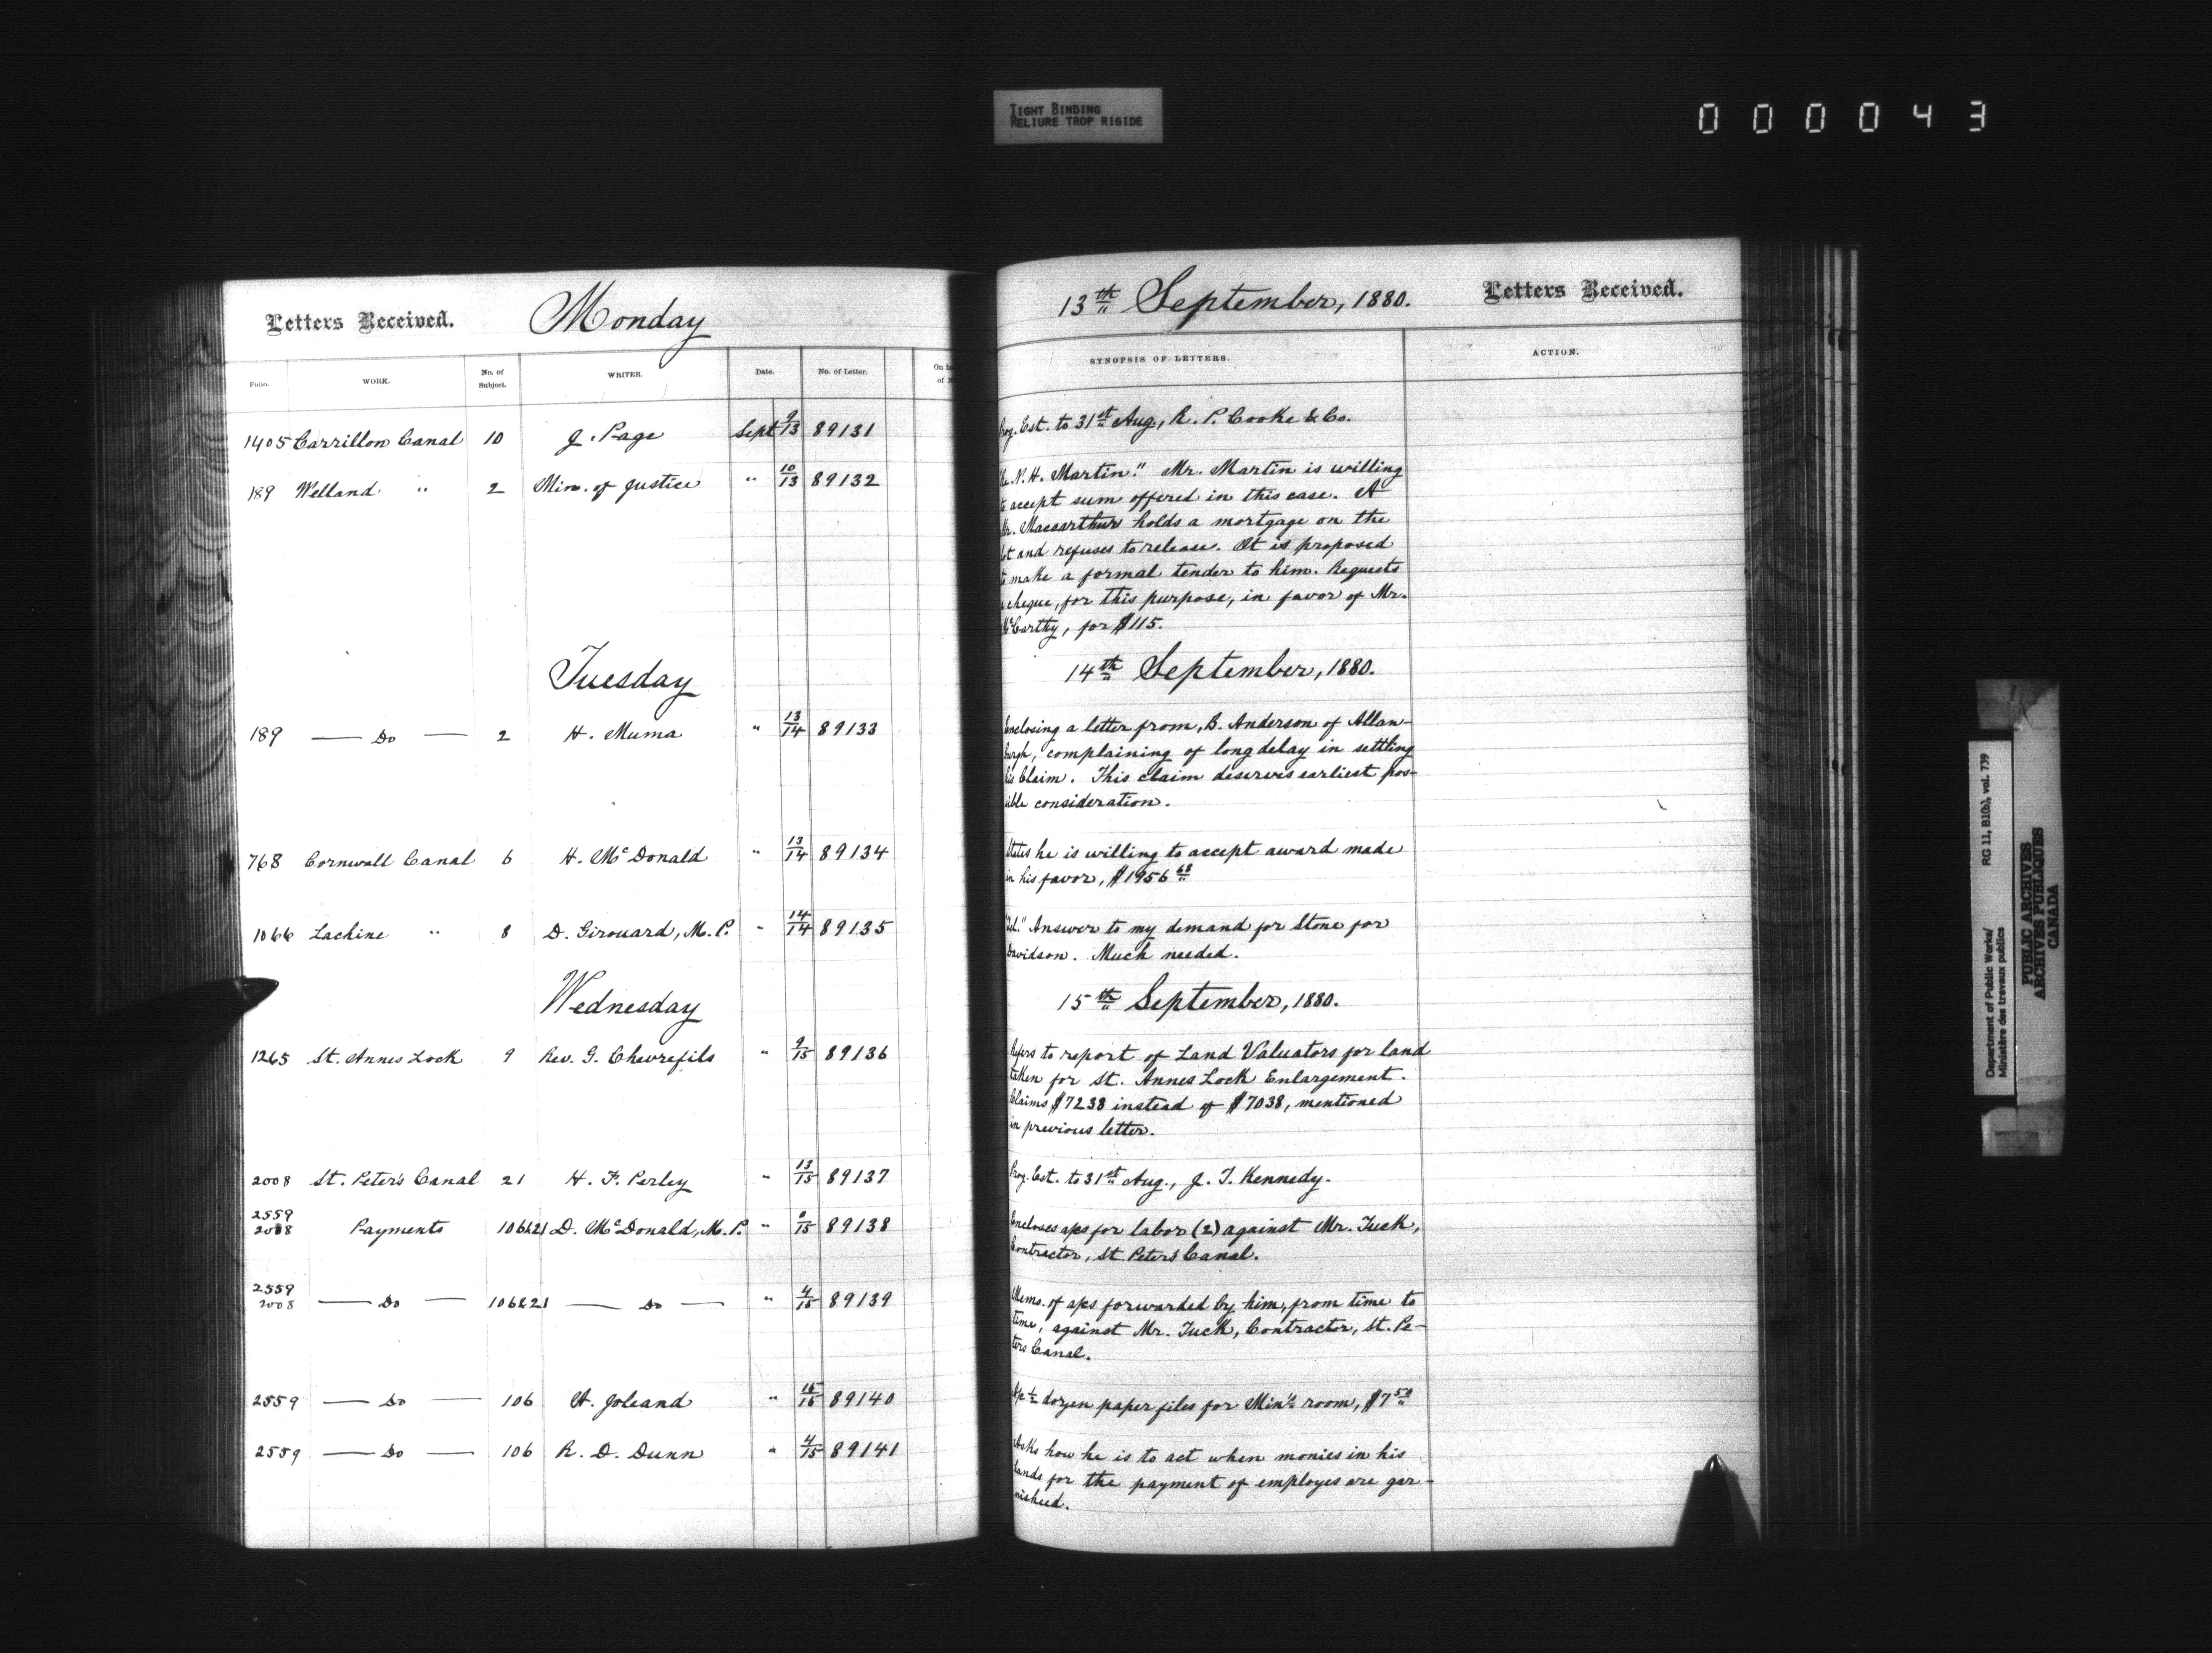 TIGHT BINDING
RELIURE TROP RIGIDE
000043
Letters Received. Monday
Folio. WORK. No. of Subject. WRITER. Date. No. of Letter.
1405 Carrillon Canal 10 J. Page Sept 9/13 89131
189 Welland " 2 Min. of Justice " 10/13 89132
Tuesday
189 — Do — 2 H. Muma " 13/14 89133
768 Cornwall Canal 6 H. McDonald " 13/14 89134
1066 Lachine " 8 D. Girouard, M.P. " 14/14 89135
Wednesday
1265 St. Annes Lock 9 Rev. G. Chevrefils " 9/15 89136
2008 St. Peter's Canal 21 H. F. Perley " 13/15 89137
2559
2008 Payments 106&21 D. McDonald, M.P. " 0/15 89138
2559
2008 — Do — 106&21 — Do — " 4/15 89139
2559 — Do — 106 A. Joleand " 15/15 89140
2559 — Do — 106 R. D. Dunn " 4/15 89141
13th September, 1880. Letters Received.
SYNOPSIS OF LETTERS. ACTION.
Prog. Est. to 31st Aug., R. P. Cooke & Co.
"Re. N. H. Martin." Mr. Martin is willing
to accept sum offered in this case. A
Mr. Macarthur holds a mortgage on the
lot and refuses to release. It is proposed
to make a formal tender to him. Requests
a cheque, for this purpose, in favor of Mr.
McCarthy, for $115.
14th September, 1880.
Enclosing a letter from, B. Anderson of Allan-
burgh, complaining of long delay in settling
his Claim. This claim deserves earliest pos-
sible consideration.
States he is willing to accept award made
in his favor, $1956 68
"Tel." Answer to my demand for Stone for
Davidson. Much needed.
15th September, 1880.
Refers to report of Land Valuators for land
taken for St. Annes Lock Enlargement.
Claims $7238 instead of $7038, mentioned
in previous letter.
Prog. Est. to 31st Aug., J. T. Kennedy.
Encloses a/cs for labor (2) against Mr. Tuck,
Contractor, St. Peters Canal.
Memo. of a/cs forwarded by him, from time to
time, against Mr. Tuck, Contractor, St. Pe-
ters Canal.
A/c ½ dozen paper files for Min's room, $7 50
Asks how he is to act when monies in his
hands for the payment of employes are gar-
nisheed.
Department of Public Works/ RG 11, B1(b), vol. 739
Ministère des travaux publics
PUBLIC ARCHIVES
ARCHIVES PUBLIQUES
CANADA